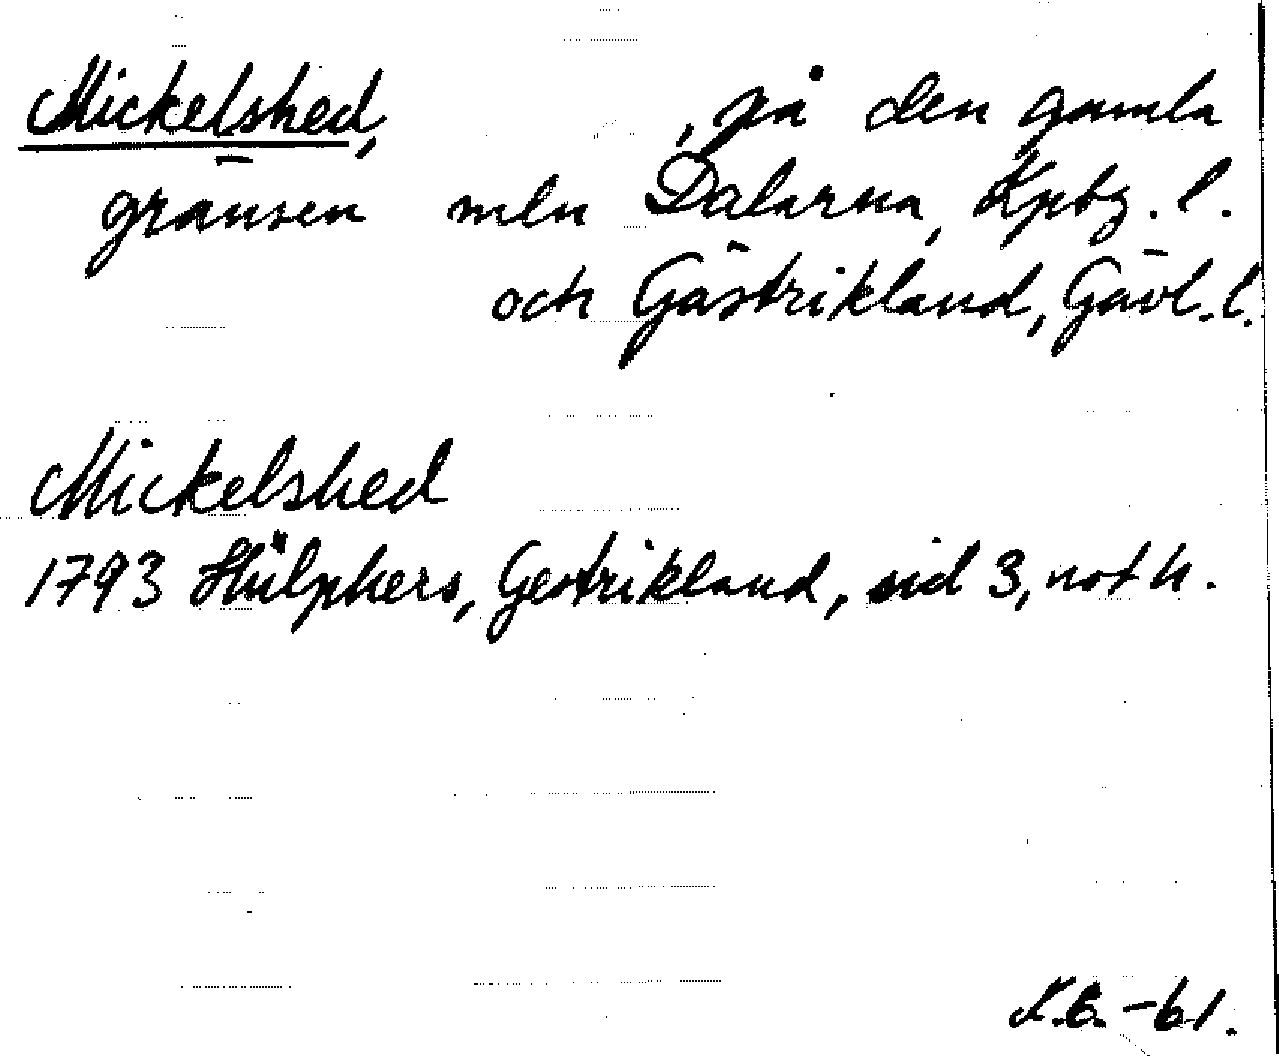 Mickelshed, , på den gamla
gränsen mln Dalarna, Kpbg. l.
och Gästrikland, Gävl. l.
Mickelshed
1793 Hülphers, Gestrikland, sid 3, not h.
-61.